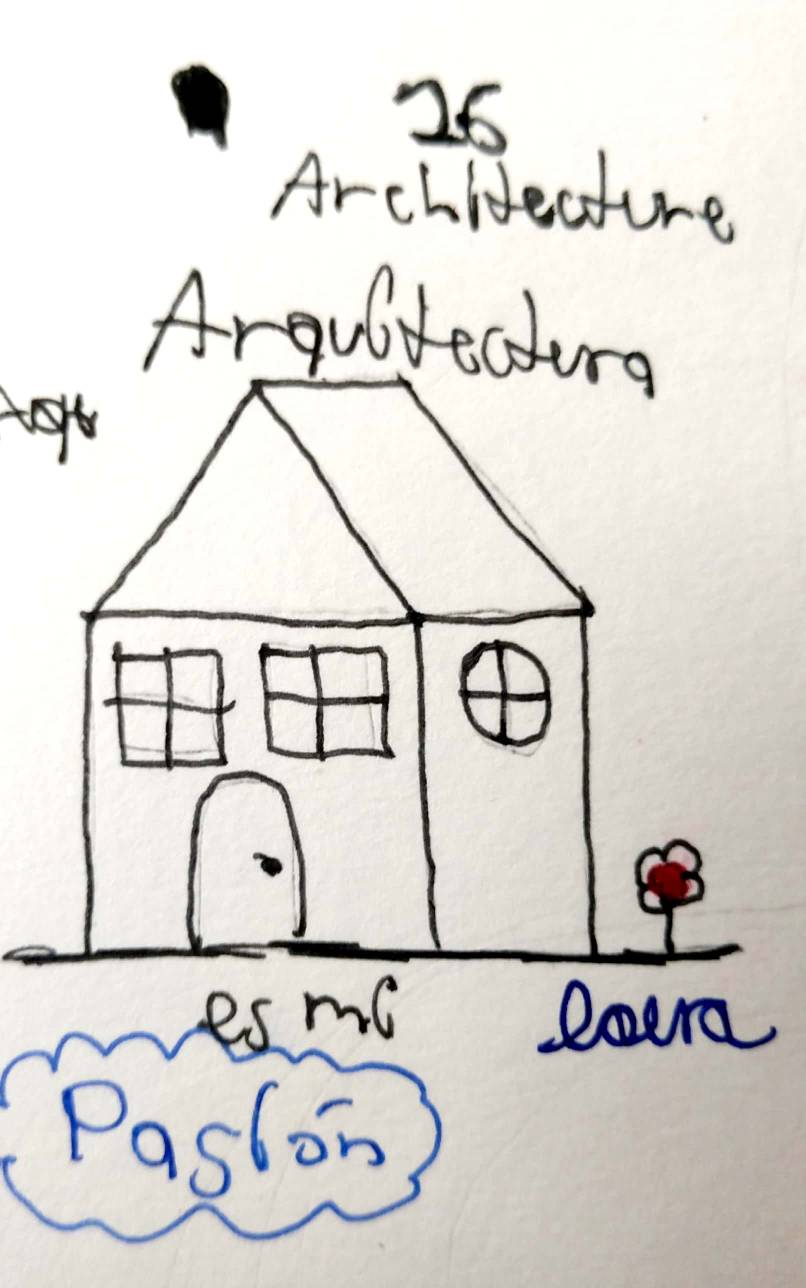 26
Architecture
Arquitectura
es mi
Pasión